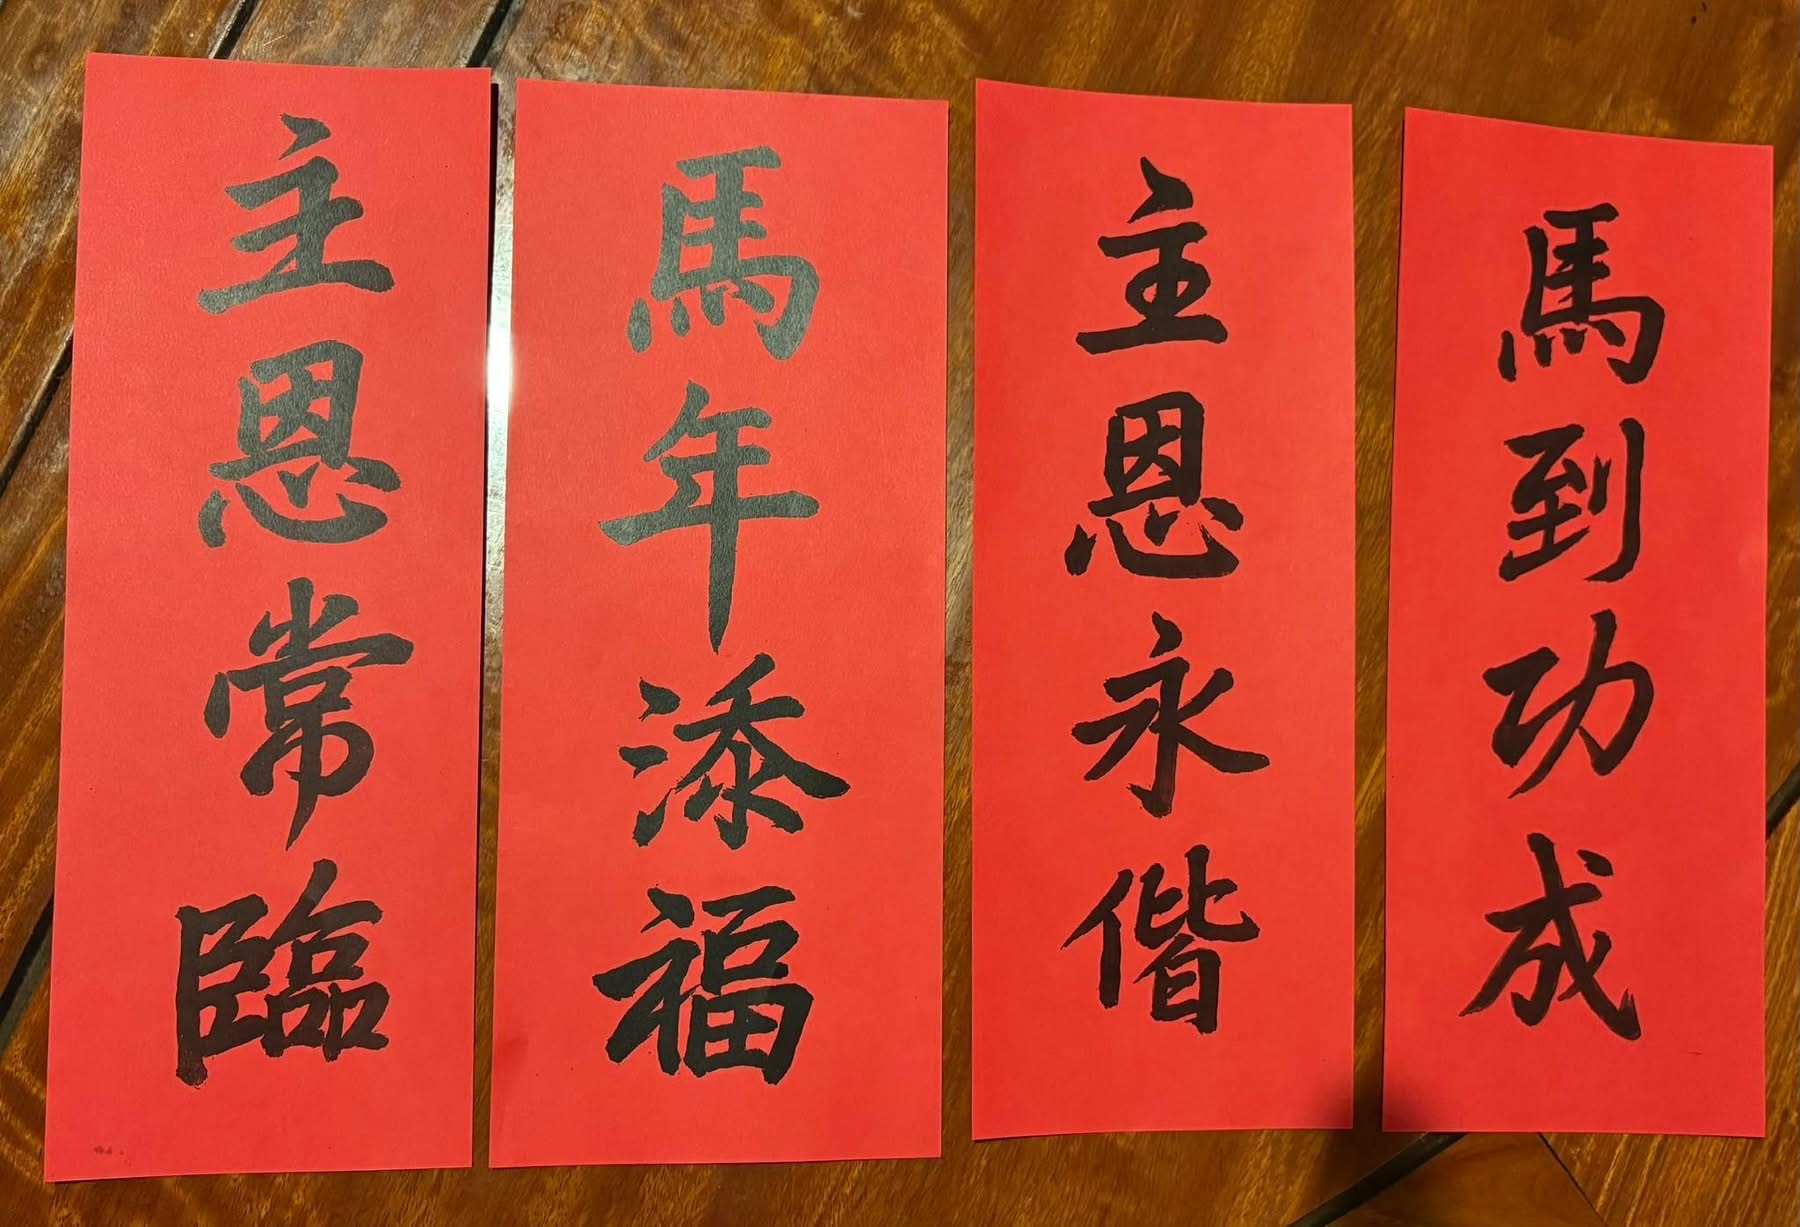 馬到功成
主恩永偕
馬年添福
主恩常臨